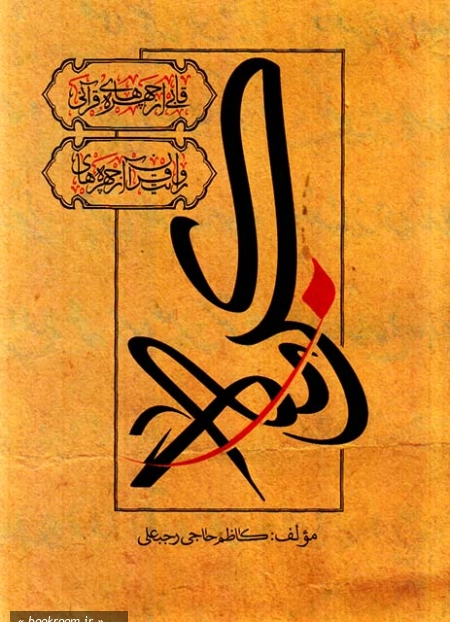 قابی از چهره های قرآنی
روایت قرآن از چهره های
مؤلف: کاظم حاجی رجبعلی
« bookroom.ir »